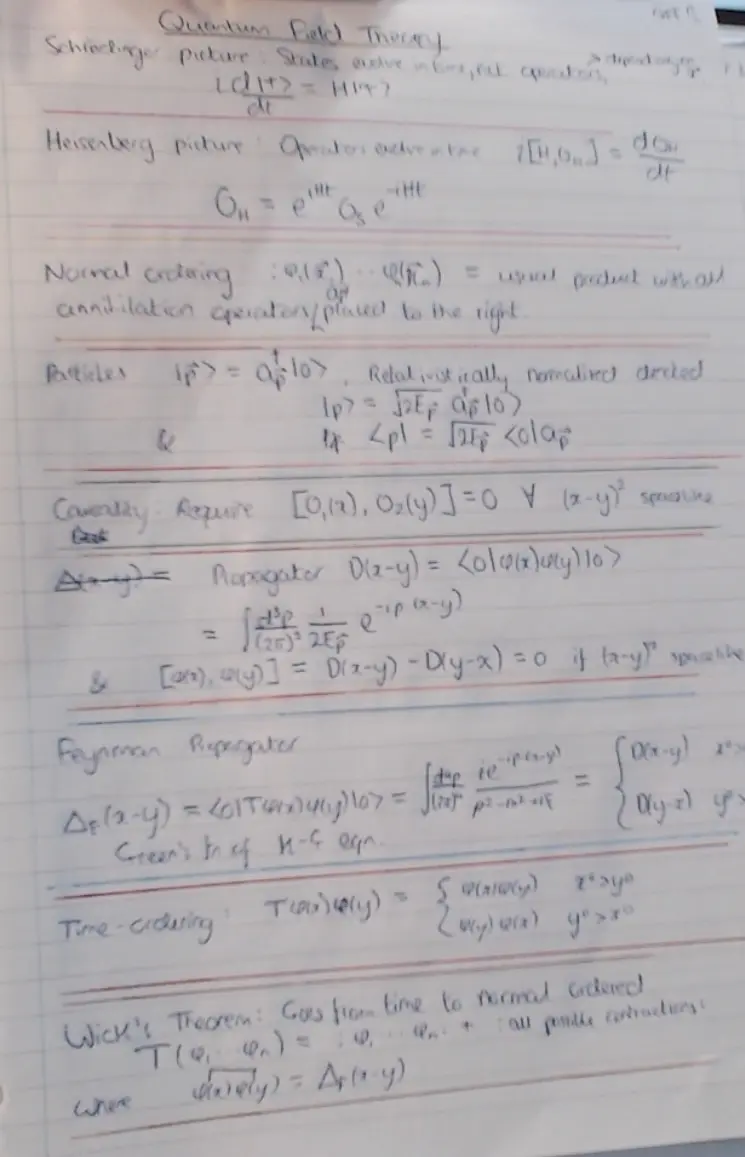 Quantum Field Theory
Schrödinger picture: States evolve in time, not operators,
i d|ψ>/dt = H|ψ>
Heisenberg picture: Operators evolve in time i[H,O_H] = dO_H/dt
O_H = e^{iHt} O_S e^{-iHt}
Normal ordering :φ₁(x⃗₁) ·· φ(x⃗ₙ) = usual product with all
annihilation operators a_p⃗ placed to the right.
Particles |p⃗> = a†_p⃗|0>, Relativistically normalised
|p> = √2E_p⃗ a†_p⃗|0>
& <p| = √2E_p⃗ <0|a_p⃗
Causality - Require [O₁(x), O₂(y)] = 0 ∀ (x-y)² spacelike
Δ(x-y) = Propagator D(x-y) = <0|φ(x)φ(y)|0>
= ∫ d³p/(2π)³ 1/2E_p⃗ e^{-ip(x-y)}
& [φ(x), φ(y)] = D(x-y) - D(y-x) = 0 if (x-y)² spacelike
Feynman Propagator
Δ_F(x-y) = <0|Tφ(x)φ(y)|0> = ∫ d⁴p/(2π)⁴ ie^{-ip(x-y)}/p²-m²+iε = { D(x-y) x⁰>
D(y-x) y⁰>
Green's fn of K-G eqn.
Time-ordering: Tφ(x)φ(y) = { φ(x)φ(y) x⁰>y⁰
φ(y)φ(x) y⁰>x⁰
Wick's Theorem: Goes from time to normal ordered
T(φ₁ ·· φₙ) = :φ₁ ·· φₙ: + :all possible contractions:
where φ(x)φ(y) = Δ_F(x-y)